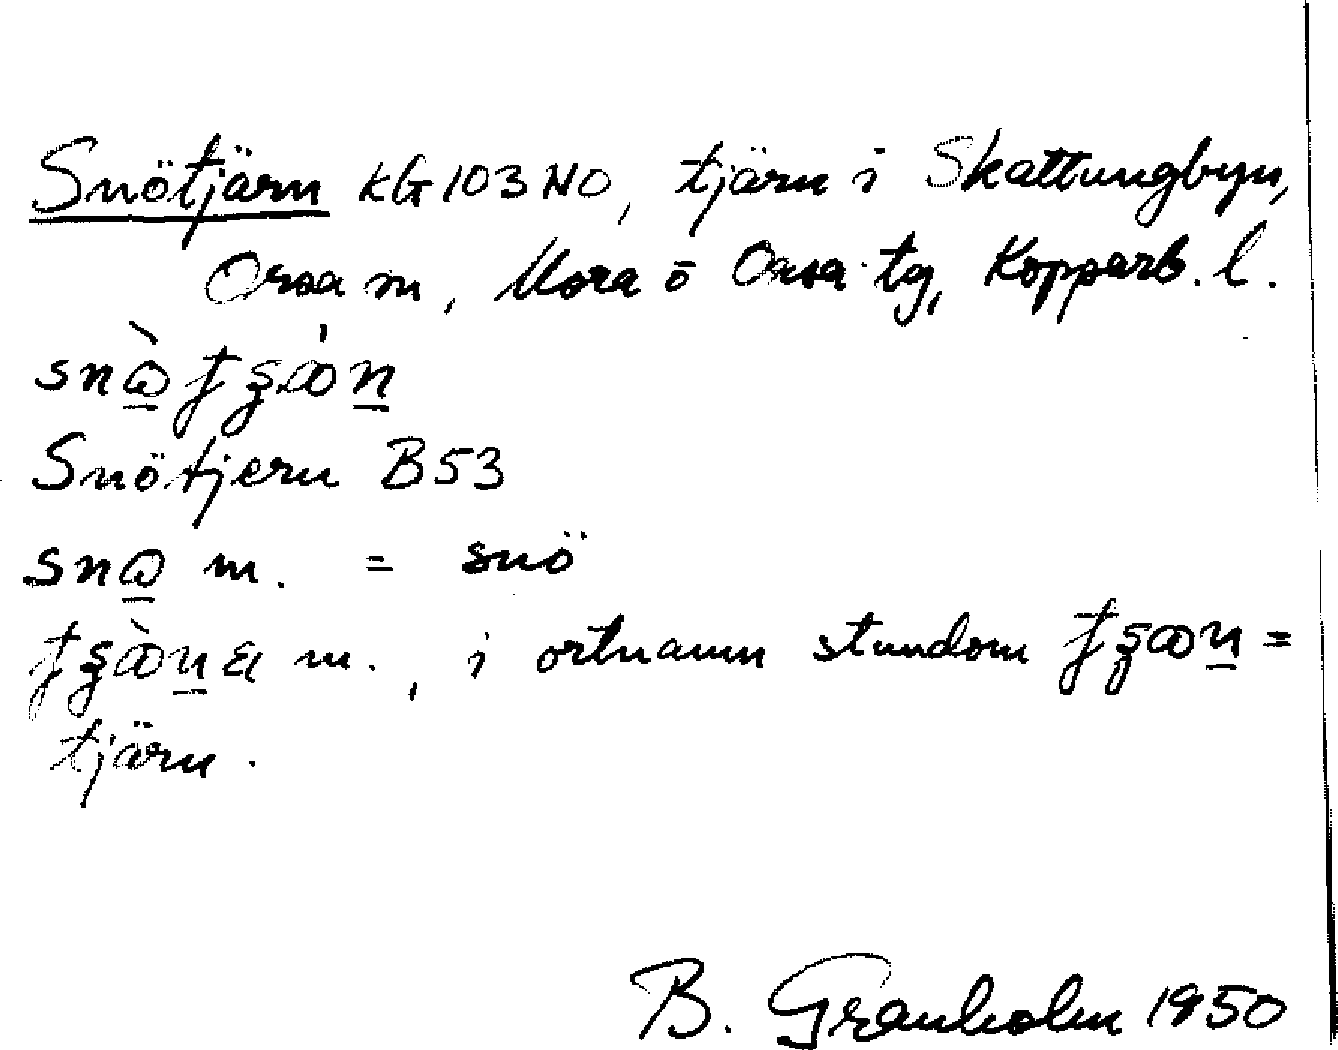 Snötjärn KG 103 NO, tjärn i Skattungbyn,
Orsa sn, Mora o Orsa tg, Kopparb. l.
Snötjern B53
m. = snö
m., i ortnamn stundom =
tjärn.
B. Granholm 1950